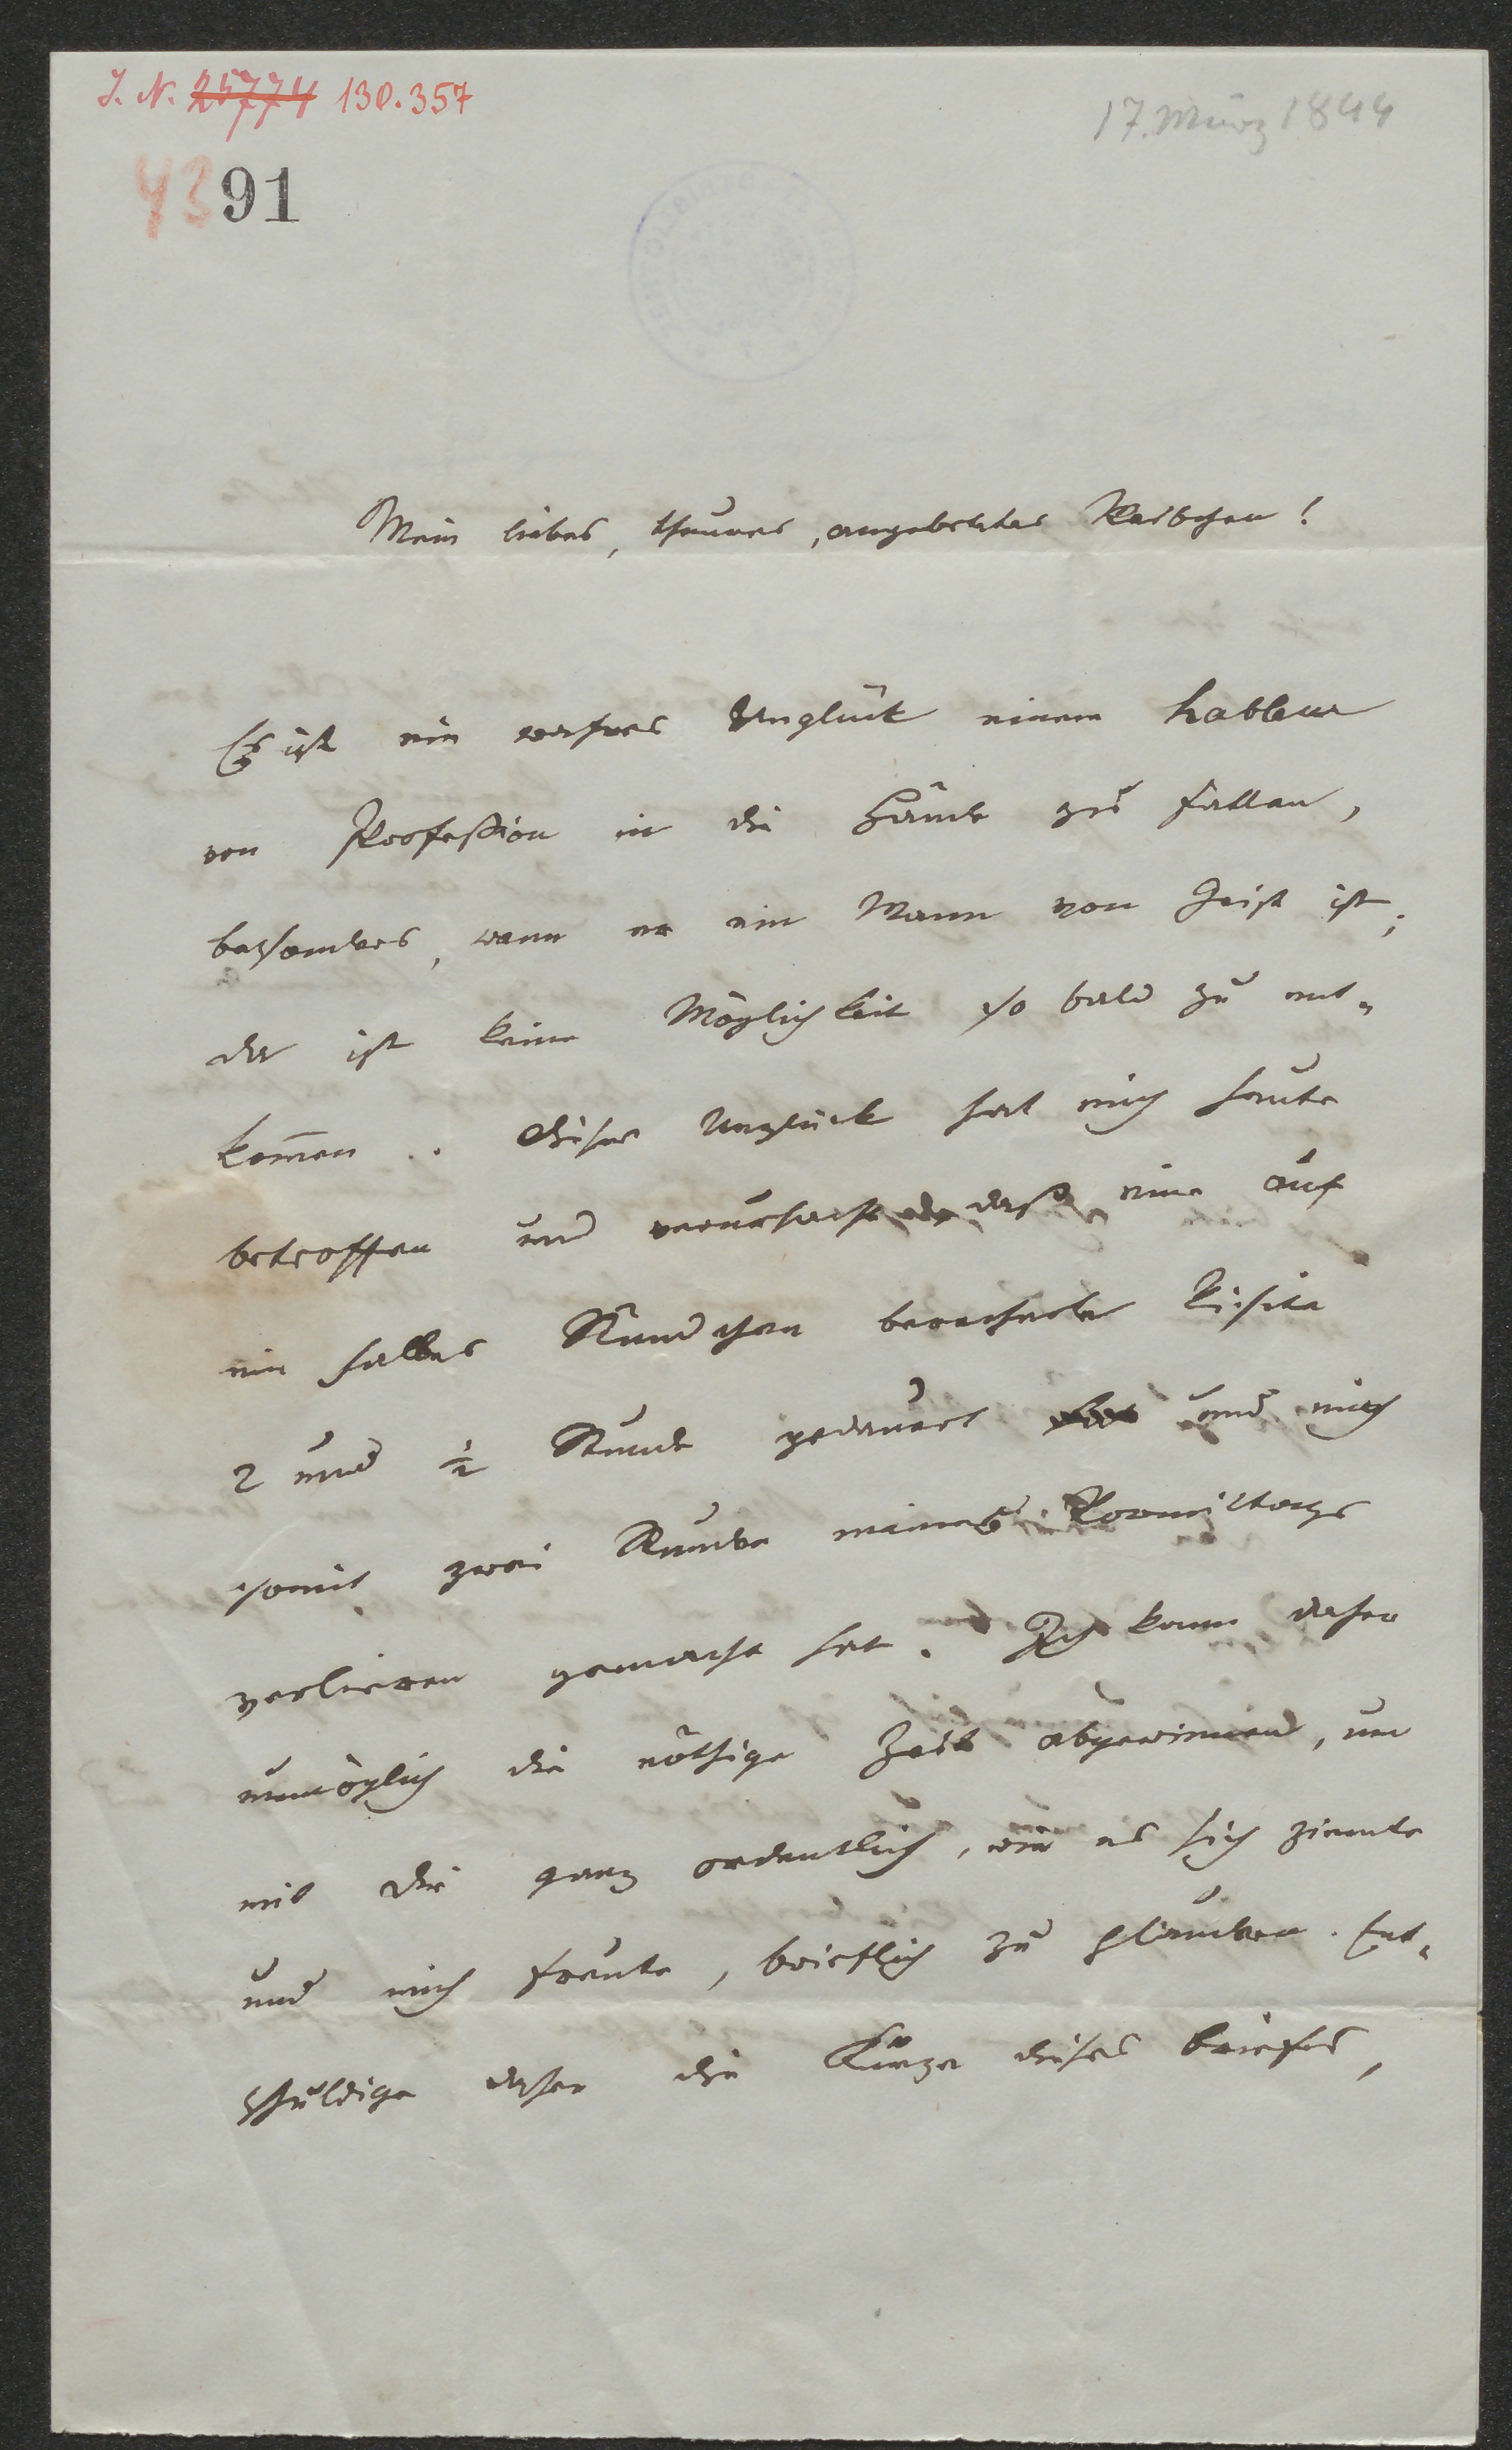 I. N. 25774 130.357
17. März 1844
4391
Mein liebes, theures, angebethetes Weibchen!
Es ist ein wahres Unglück einem hableur
von Profeßion in die Hände zu fallen,
besonders, wenn er ein Mann von Geist ist;
da ist keine Möglichkeit so bald zu ent-
kommen. Dieses Unglück hat mich heute
betroffen und verursacht daß eine auf
ein halbes Stündchen berechnete Visite
2 und ½ Stunde gedauert und mich
somit zwei Stunden meines Vormittags
verlieren gemacht hat. Ich kann daher
unmöglich die nöthige Zeit abgewinnen, um
mit dir ganz ordentlich, wie es sich ziemte
und mich freute, brieflich zu plaudern. Ent-
schuldige daher die Kürze dieses Briefes,